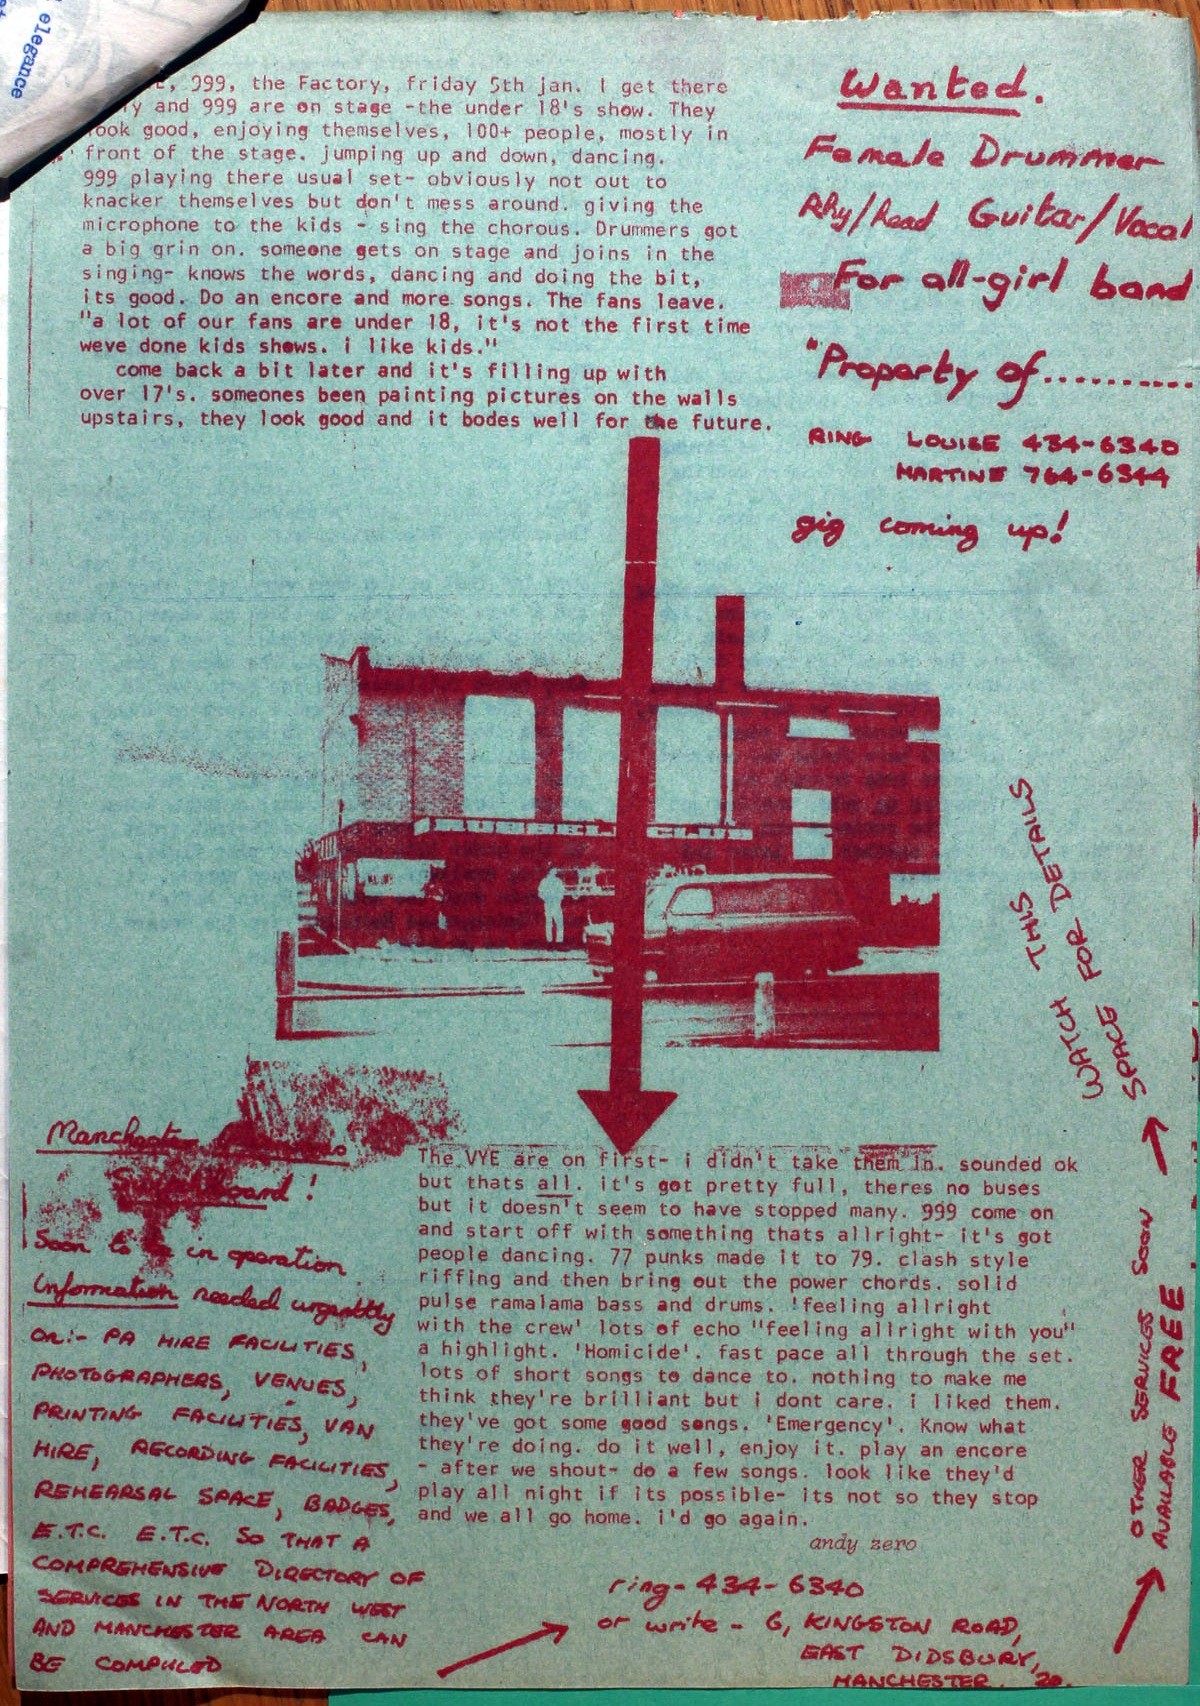 elegance
999, the Factory, friday 5th jan. I get there
and 999 are on stage -the under 18's show. They
look good, enjoying themselves, 100+ people, mostly in
front of the stage. jumping up and down, dancing.
999 playing there usual set- obviously not out to
knacker themselves but don't mess around. giving the
microphone to the kids - sing the chorous. Drummers got
a big grin on. someone gets on stage and joins in the
singing- knows the words, dancing and doing the bit,
its good. Do an encore and more songs. The fans leave.
"a lot of our fans are under 18, it's not the first time
weve done kids shows. i like kids."
come back a bit later and it's filling up with
over 17's. someones been painting pictures on the walls
upstairs, they look good and it bodes well for the future.
Wanted.
Female Drummer
Rhy/Lead Guitar/Vocal
For all-girl band
"Property of..........
RING LOUISE 434-6340
MARTINE 764-6344
gig coming up!
RUSSELL CLUB
WATCH THIS
SPACE FOR DETAILS
Manchester
Switchboard!
Soon to be in operation
Information needed urgently
ON:- PA HIRE FACILITIES,
PHOTOGRAPHERS, VENUES,
PRINTING FACILITIES, VAN
HIRE, RECORDING FACILITIES,
REHEARSAL SPACE, BADGES,
E.T.C. E.T.C. SO THAT A
COMPREHENSIVE DIRECTORY OF
SERVICES IN THE NORTH WEST
AND MANCHESTER AREA CAN
BE COMPILED
The VYE are on first- i didn't take them in. sounded ok
but thats all. it's got pretty full, theres no buses
but it doesn't seem to have stopped many. 999 come on
and start off with something thats allright- it's got
people dancing. 77 punks made it to 79. clash style
riffing and then bring out the power chords. solid
pulse ramalama bass and drums. 'feeling allright
with the crew' lots of echo "feeling allright with you"
a highlight. 'Homicide'. fast pace all through the set.
lots of short songs to dance to. nothing to make me
think they're brilliant but i dont care. i liked them.
they've got some good songs. 'Emergency'. Know what
they're doing. do it well, enjoy it. play an encore
- after we shout- do a few songs. look like they'd
play all night if its possible- its not so they stop
and we all go home. i'd go again.
andy zero
ring- 434-6340
or write - 6, KINGSTON ROAD,
EAST DIDSBURY,
MANCHESTER. 20.
OTHER SERVICES SOON
AVAILABLE FREE